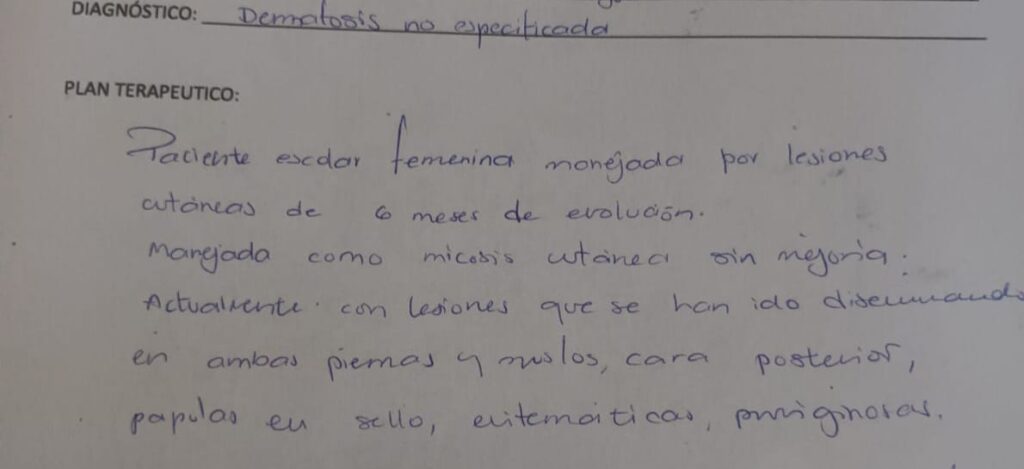 DIAGNÓSTICO: Dermatosis no especificada
PLAN TERAPEUTICO:
Paciente escolar femenina manejada por lesiones
cutáneas de 6 meses de evolución.
Manejada como micosis cutánea sin mejoria.
Actualmente con lesiones que se han ido diseminando
en ambas piernas y muslos, cara posterior,
papulas en sello, eritemáticas, pruriginosas.